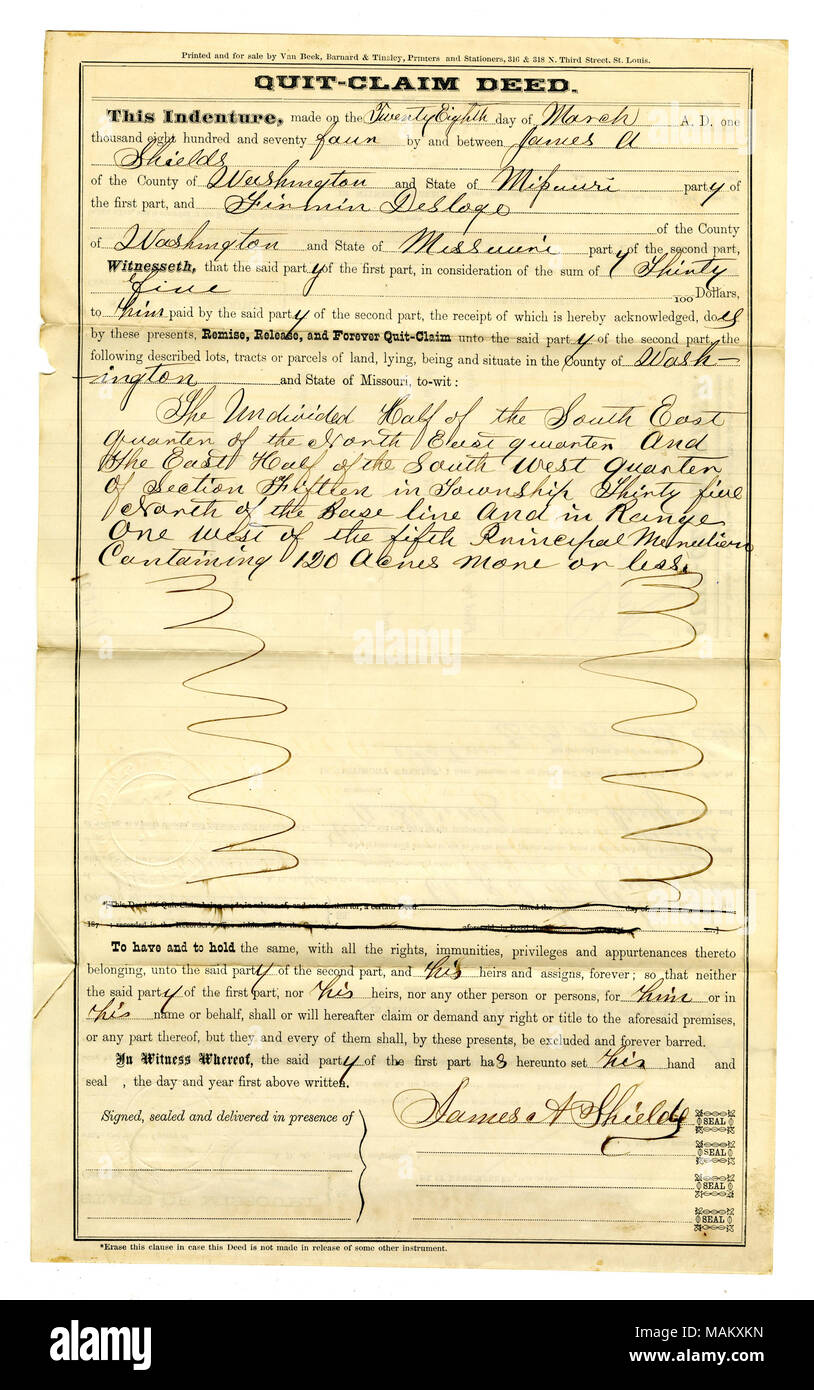 Printed and for sale by Van Beek, Barnard & Tinsley, Printers and Stationers, 316 & 318 N. Third Street, St. Louis.
QUIT-CLAIM DEED.
This Indenture, made on the Twenty Eighth day of March A. D. one
thousand eight hundred and seventy four by and between James A
Shields
of the County of Washington and State of Missouri party of
the first part, and Firmin Desloge
of the County
of Washington and State of Missouri party of the second part,
Witnesseth, that the said party of the first part, in consideration of the sum of Thirty
five 100 Dollars,
to him paid by the said party of the second part, the receipt of which is hereby acknowledged, does
by these presents, Remise, Release, and Forever Quit-Claim unto the said party of the second part, the
following described lots, tracts or parcels of land, lying, being and situate in the County of Wash-
-ington and State of Missouri, to-wit:
The Undivided Half of the South East
quarter of the North East quarter And
the East Half of the South West quarter
of Section Fifteen in Township Thirty five
North of the Base line And in Range
One West of the fifth Principal Meridien
Containing 120 Acres more or less.
*This Deed of Quit-Claim being made in release of, and satisfaction for, a certain Deed dated the day of
187 recorded in the Recorder's
To have and to hold the same, with all the rights, immunities, privileges and appurtenances thereto
belonging, unto the said party of the second part, and his heirs and assigns, forever; so that neither
the said party of the first part, nor his heirs, nor any other person or persons, for him or in
his name or behalf, shall or will hereafter claim or demand any right or title to the aforesaid premises,
or any part thereof, but they and every of them shall, by these presents, be excluded and forever barred.
In Witness Whereof, the said party of the first part has hereunto set his hand and
seal , the day and year first above written.
Signed, sealed and delivered in presence of
James A Shields SEAL
SEAL
SEAL
SEAL
*Erase this clause in case this Deed is not made in release of some other instrument.
alamy
Image ID: MAKXKN
www.alamy.com